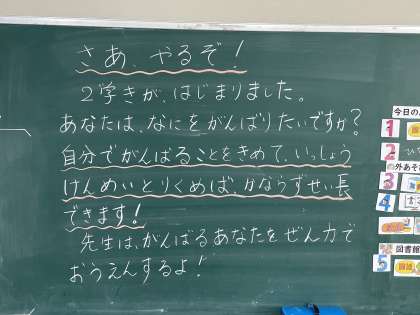 さあ、やるぞ!
2学きが、はじまりました。
あなたは、なにをがんばりたいですか?
自分でがんばることをきめて、いっしょう
けんめいとりくめば、かならずせい長
できます!
先生は、がんばるあなたをぜん力で
おうえんするよ!
今日の
1
2
外あそ
3
4
図書館
5
国語